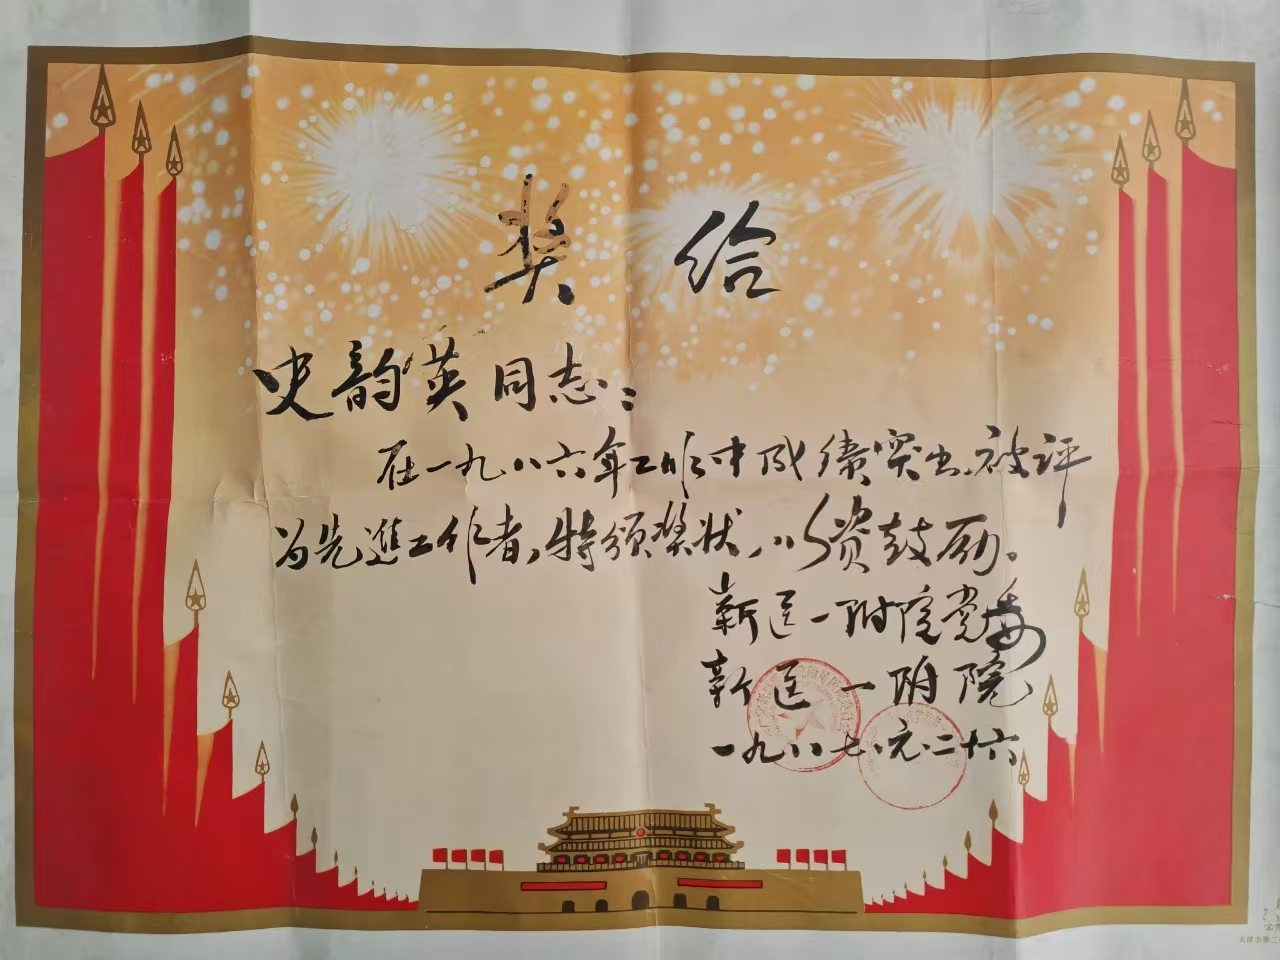 奖给
史韵英同志：
在一九八六年工作中成绩突出被评
为先進工作者，特颁奖状，以资鼓励。
新医一附院党委
新医一附院
一九八七.元.二十六
天津市第二